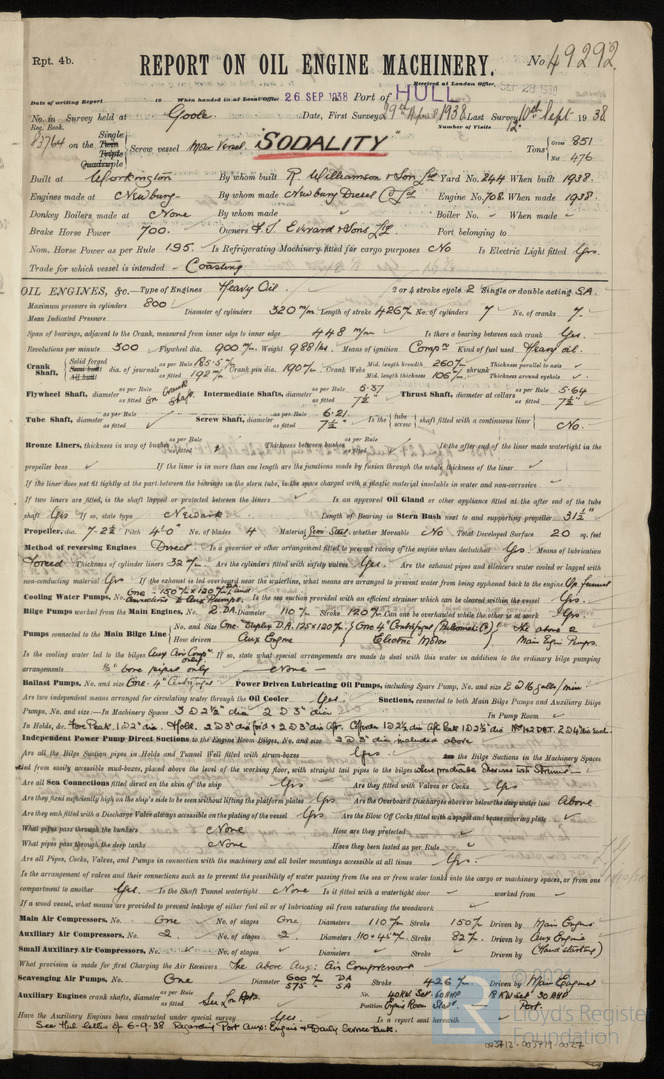 Rpt. 4b.
REPORT ON OIL ENGINE MACHINERY.
No 49292.
Received at London Office
SEP 28 1938
Date of writing Report 19 When handed in at Local Office 26 SEP 1938 Port of HULL
No. in Survey held at Goole Date, First Survey 29th April 1938 Last Survey 10th Sept 1938
Reg. Book. Number of Visits 12
83764 on the Single Twin Triple Quadruple Screw vessel Motor Vessel "SODALITY" Tons Gross 851 Net 476
Built at Workington By whom built R. Williamson & Son Ltd Yard No. 244 When built 1938.
Engines made at Newbury By whom made Newbury Diesel Co Ltd Engine No. 708 When made 1938.
Donkey Boilers made at None By whom made Boiler No. When made
Brake Horse Power 700. Owners F. T. Everard & Sons Ltd Port belonging to
Nom. Horse Power as per Rule 195. Is Refrigerating Machinery fitted for cargo purposes No Is Electric Light fitted Yes.
Trade for which vessel is intended Coasting
OIL ENGINES, &c.—Type of Engines Heavy Oil 2 or 4 stroke cycle 2 Single or double acting S.A.
Maximum pressure in cylinders 800 Diameter of cylinders 320 m/m Length of stroke 426 No. of cylinders 7 No. of cranks 7.
Mean Indicated Pressure
Span of bearings, adjacent to the Crank, measured from inner edge to inner edge 448 m/m Is there a bearing between each crank Yes.
Revolutions per minute 300 Flywheel dia. 900 Weight 988 lbs. Means of ignition Compn Kind of fuel used Heavy oil.
Crank Shaft, Solid forged Semi built All built dia. of journals as per Rule 185.5 as fitted 192 Crank pin dia. 190 Crank Webs Mid. length breadth 260 Mid. length thickness 106 shrunk Thickness parallel to axis Thickness around eyehole
Flywheel Shaft, diameter as per Rule as fitted On Crank Shaft. Intermediate Shafts, diameter as per Rule 5.37 as fitted 7½" Thrust Shaft, diameter at collars as per Rule 5.64 as fitted 7½"
Tube Shaft, diameter as per Rule as fitted Screw Shaft, diameter as per Rule 6.21 as fitted 7½" Is the tube screw shaft fitted with a continuous liner No.
Bronze Liners, thickness in way of bushes as per Rule as fitted Thickness between bushes as per Rule as fitted Is the after end of the liner made watertight in the
propeller boss If the liner is in more than one length are the junctions made by fusion through the whole thickness of the liner
If the liner does not fit tightly at the part between the bearings in the stern tube, is the space charged with a plastic material insoluble in water and non-corrosive
If two liners are fitted, is the shaft lapped or protected between the liners Is an approved Oil Gland or other appliance fitted at the after end of the tube
shaft Yes If so, state type Newark Length of Bearing in Stern Bush next to and supporting propeller 31½"
Propeller, dia. 7-2½ Pitch 4'-0" No. of blades 4 Material Semi Steel whether Moveable No Total Developed Surface 20 sq. feet
Method of reversing Engines Direct Is a governor or other arrangement fitted to prevent racing of the engine when declutched Yes. Means of lubrication
Forced Thickness of cylinder liners 32 Are the cylinders fitted with safety valves Yes. Are the exhaust pipes and silencers water cooled or lagged with
non-conducting material Yes If the exhaust is led overboard near the waterline, what means are arranged to prevent water from being syphoned back to the engine Up funnel
Cooling Water Pumps, No. One 150 x 120 D.A. and connections to Aux Pumps. Is the sea suction provided with an efficient strainer which can be cleared within the vessel Yes.
Bilge Pumps worked from the Main Engines, No. 2 D.A. Diameter 110 Stroke 120 Can one be overhauled while the other is at work Yes.
Pumps connected to the Main Bilge Line No. and Size One Duplex D.A. 125x120 One 4" Centrifugal The above 2
How driven Aux Engine Electric Motor Main Engine Pumps.
Is the cooling water led to the bilges Aux Air Compr only. If so, state what special arrangements are made to deal with this water in addition to the ordinary bilge pumping
arrangements ½" bore pipes only None
Ballast Pumps, No. and size One 4" Centrifugal Power Driven Lubricating Oil Pumps, including Spare Pump, No. and size 2 @ 16 galls/min
Are two independent means arranged for circulating water through the Oil Cooler Yes. Suctions, connected to both Main Bilge Pumps and Auxiliary Bilge
Pumps, No. and size:—In Machinery Spaces 3 @ 2½" dia 2 @ 3" dia In Pump Room
In Holds, &c. Fore Peak. 1 @ 2" dia. Hold. 2 @ 3" dia ford & 2 @ 3" dia Aft.
Independent Power Pump Direct Suctions to the Engine Room Bilges, No. and size 2 @ 3" dia included above
Are all the Bilge Suction pipes in Holds and Tunnel Well fitted with strum-boxes Yes. Are the Bilge Suctions in the Machinery Spaces
led from easily accessible mud-boxes, placed above the level of the working floor, with straight tail pipes to the bilges
Are all Sea Connections fitted direct on the skin of the ship Yes Are they fitted with Valves or Cocks Yes
Are they fixed sufficiently high on the ship's side to be seen without lifting the platform plates Yes Are the Overboard Discharges above or below the deep water line Above
Are they each fitted with a Discharge Valve always accessible on the plating of the vessel Yes Are the Blow Off Cocks fitted with a spigot and brass covering plate
What pipes pass through the bunkers None How are they protected
What pipes pass through the deep tanks None Have they been tested as per Rule
Are all Pipes, Cocks, Valves, and Pumps in connection with the machinery and all boiler mountings accessible at all times Yes.
Is the arrangement of valves and their connections such as to prevent the possibility of water passing from the sea or from water tanks into the cargo or machinery spaces, or from one
compartment to another Yes. Is the Shaft Tunnel watertight None Is it fitted with a watertight door worked from
If a wood vessel, what means are provided to prevent leakage of either fuel oil or of lubricating oil from saturating the woodwork
Main Air Compressors, No. One No. of stages One Diameters 110 Stroke 150 Driven by Main Engine
Auxiliary Air Compressors, No. 2 No. of stages 2 Diameters 110 & 45 Stroke 82 Driven by Aux Engine
Small Auxiliary Air Compressors, No. No. of stages Diameters Stroke Driven by (Hand starting)
What provision is made for first Charging the Air Receivers The above Aux: Air Compressors
Scavenging Air Pumps, No. One Diameter 600 D.A. 575 S.A. Stroke 426 Driven by Main Engines
Auxiliary Engines crank shafts, diameter as per Rule as fitted See Lon Rpts. No. 40KW Set. 60 BHP 18 KW Set 30 BHP
Position Engine Room Starbd. Port.
Have the Auxiliary Engines been constructed under special survey Yes. Is a report sent herewith
See Hul letter of 6-9-38 Regarding Port Aux: Engine & Daily Service tank.
© 2021
Lloyd's Register
Foundation
003712-003719-0027